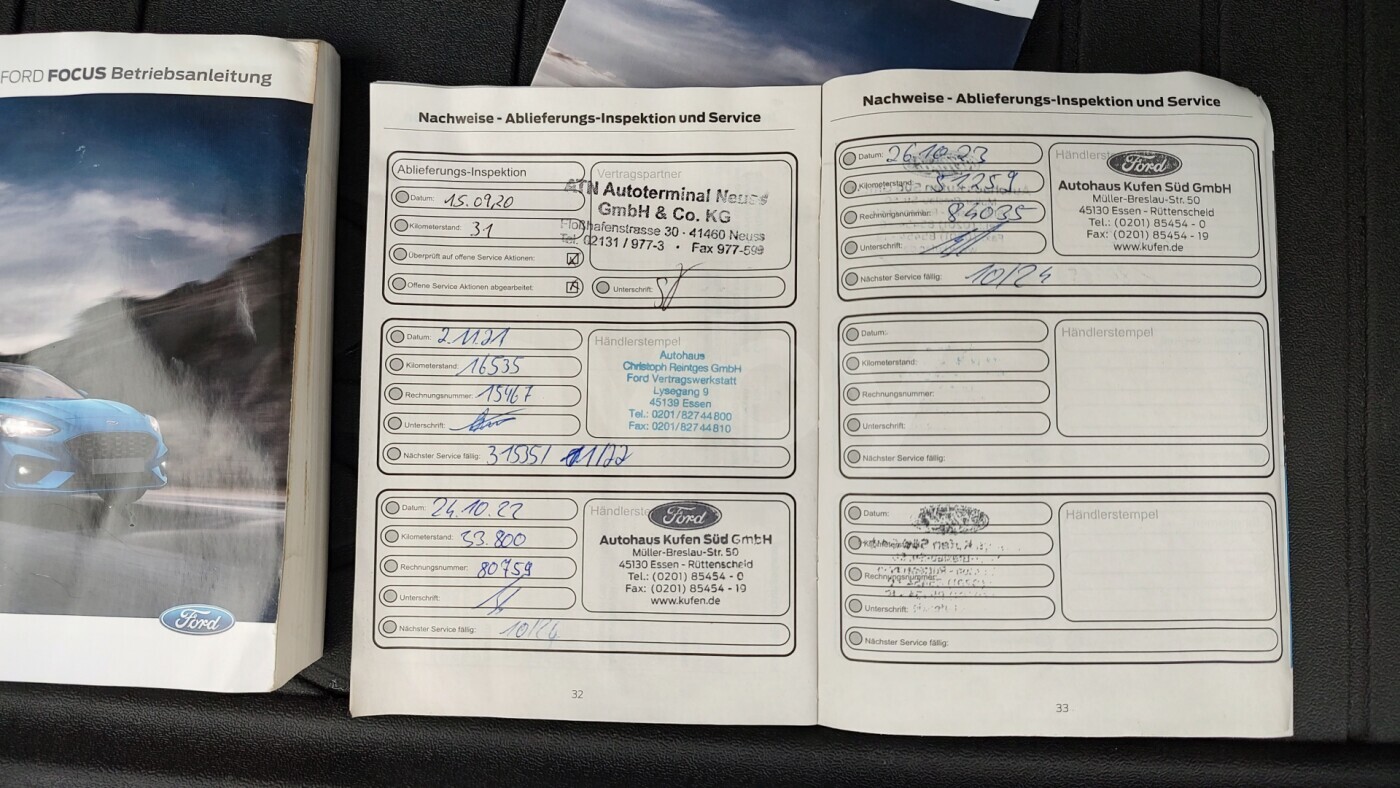 FORD FOCUS Betriebsanleitung
Ford
Nachweise - Ablieferungs-Inspektion und Service
Ablieferungs-Inspektion
Datum: 15.09.20
Kilometerstand: 31
Überprüft auf offene Service Aktionen:
Offene Service Aktionen abgearbeitet:
Vertragspartner
ATN Autoterminal Neuss
GmbH & Co. KG
Floßhafenstrasse 30 · 41460 Neuss
Tel. 02131 / 977-3 · Fax 977-599
Unterschrift:
Datum: 2.11.21
Kilometerstand: 16535
Rechnungsnummer: 15467
Unterschrift:
Nächster Service fällig: 31535/ 11/22
Händlerstempel
Autohaus
Christoph Reintges GmbH
Ford Vertragswerkstatt
Lysegang 9
45139 Essen
Tel.: 0201/82744800
Fax: 0201/82744810
Datum: 24.10.22
Kilometerstand: 33.800
Rechnungsnummer: 80759
Unterschrift:
Nächster Service fällig:
Ford
Autohaus Kufen Süd GmbH
Müller-Breslau-Str. 50
45130 Essen - Rüttenscheid
Tel.: (0201) 85454 - 0
Fax: (0201) 85454 - 19
www.kufen.de
32
Nachweise - Ablieferungs-Inspektion und Service
Datum: 26.10.23
Kilometerstand: 51259
Rechnungsnummer: 84035
Unterschrift:
Nächster Service fällig: 10/24
Ford
Autohaus Kufen Süd GmbH
Müller-Breslau-Str. 50
45130 Essen - Rüttenscheid
Tel.: (0201) 85454 - 0
Fax: (0201) 85454 - 19
www.kufen.de
Datum:
Kilometerstand:
Rechnungsnummer:
Unterschrift:
Nächster Service fällig:
Händlerstempel
Datum:
Kilometerstand:
Rechnungsnummer:
Unterschrift:
Nächster Service fällig:
Händlerstempel
33